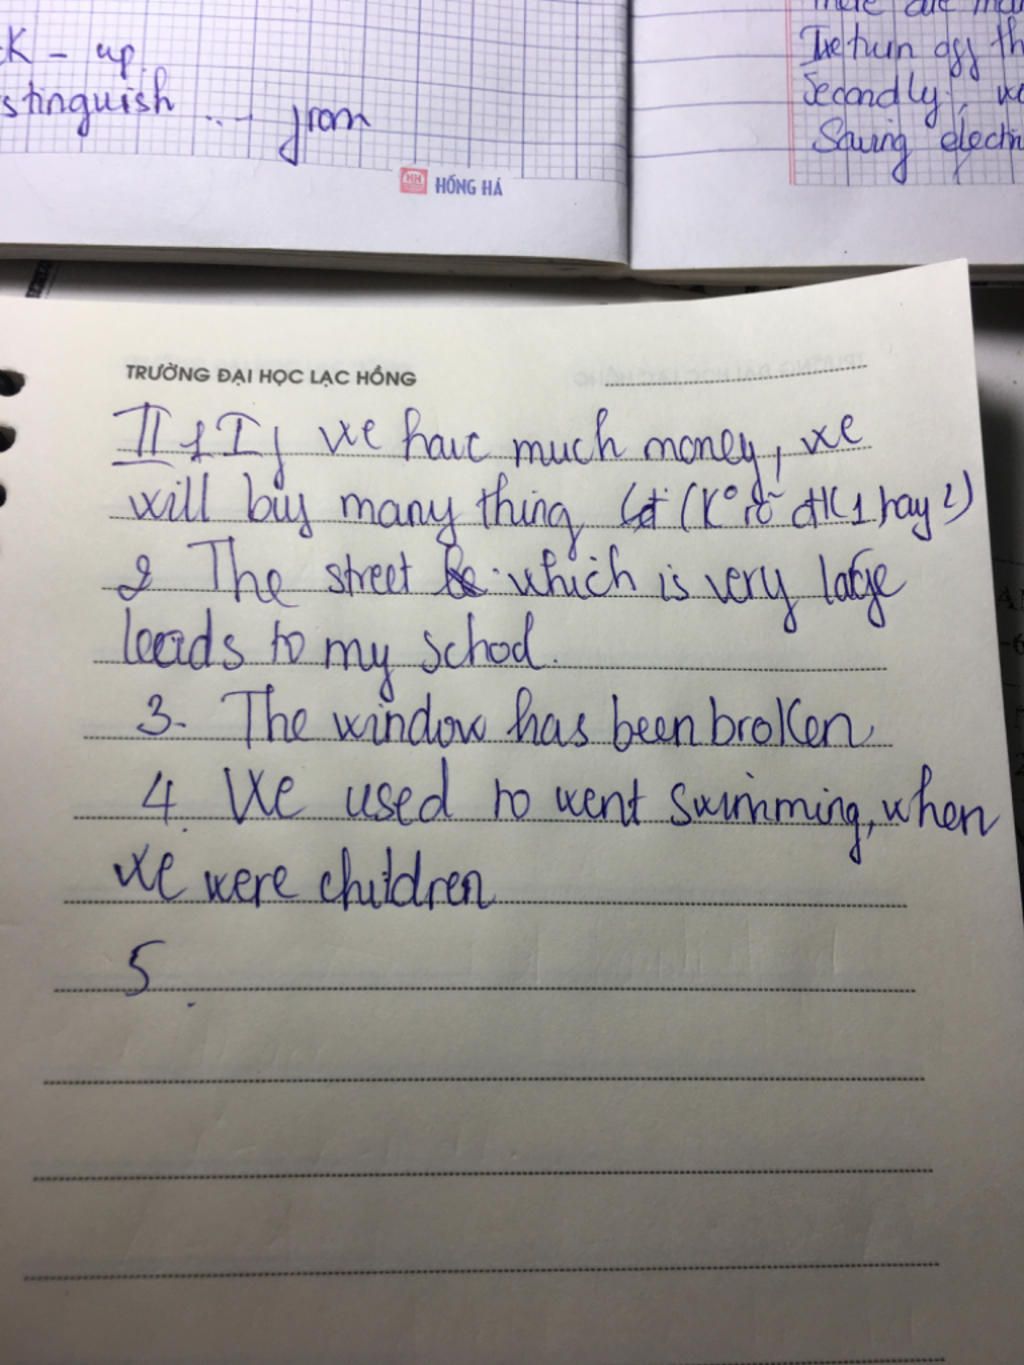 K - up.
stinguish ... from
HỒNG HÀ
Secondly, we
Saving electri
TRƯỜNG ĐẠI HỌC LẠC HỒNG
II 1 If we have much money, we
will buy many thing (K° rõ đk1 hay 2)
2 The street which is very large
leads to my school.
3. The window has been broken
4. We used to went swimming, when
we were children
5.